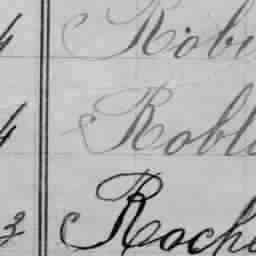 4 Robi
4 Robl
3 Roch